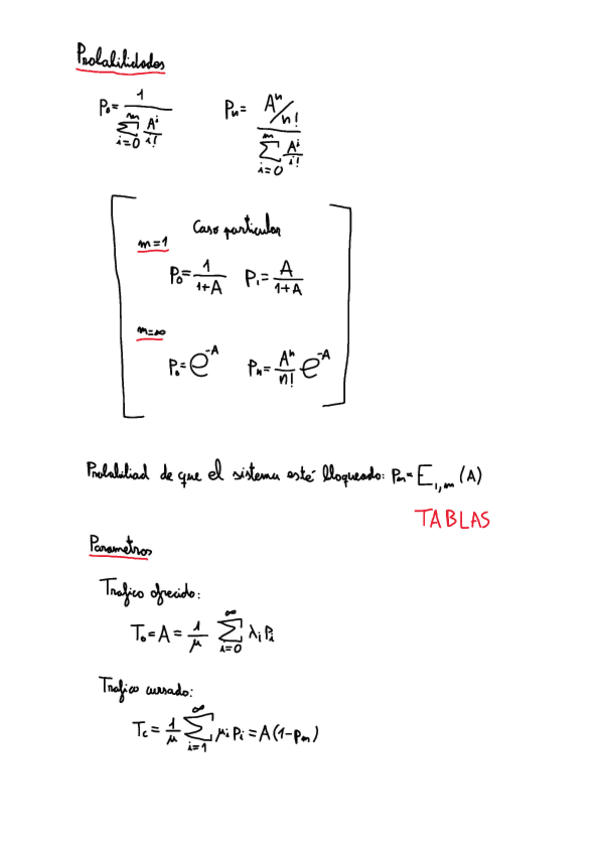 Probabilidades
P₀ = 1 / ∑_{i=0}^{m} A^i/i!    Pₙ = (Aⁿ/n!) / ∑_{i=0}^{m} A^i/i!
Caso particular
m=1
P₀ = 1/(1+A)    P₁ = A/(1+A)
m=∞
P₀ = e^{-A}    Pₙ = Aⁿ/n! e^{-A}
Probabiliad de que el sistema esté bloqueado: Pₘ = E_{1,m} (A)
TABLAS
Parametros
Trafico ofrecido:
T₀ = A = 1/μ ∑_{i=0}^{∞} λᵢ Pᵢ
Trafico cursado:
T_c = 1/μ ∑_{i=1}^{∞} μᵢ Pᵢ = A(1-pₘ)